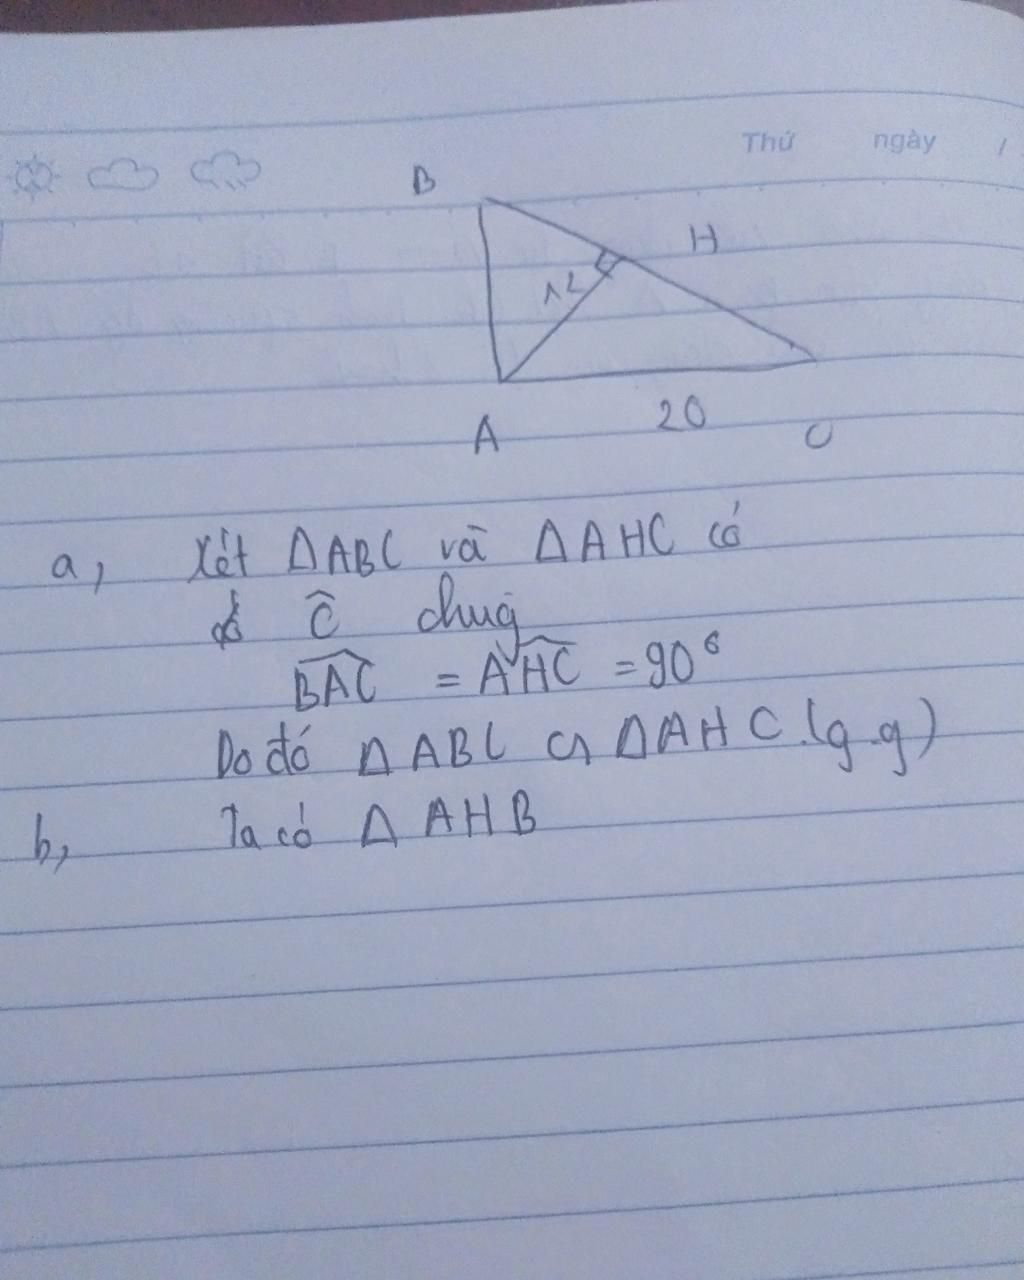 Thứ ngày /
B
H
12
20
A
C
a, Xét ΔABC và ΔAHC có
Ĉ chug
BAC = AHC = 90°
Do đó ΔABC ᔕ ΔAHC (g.g)
b, Ta có Δ AHB